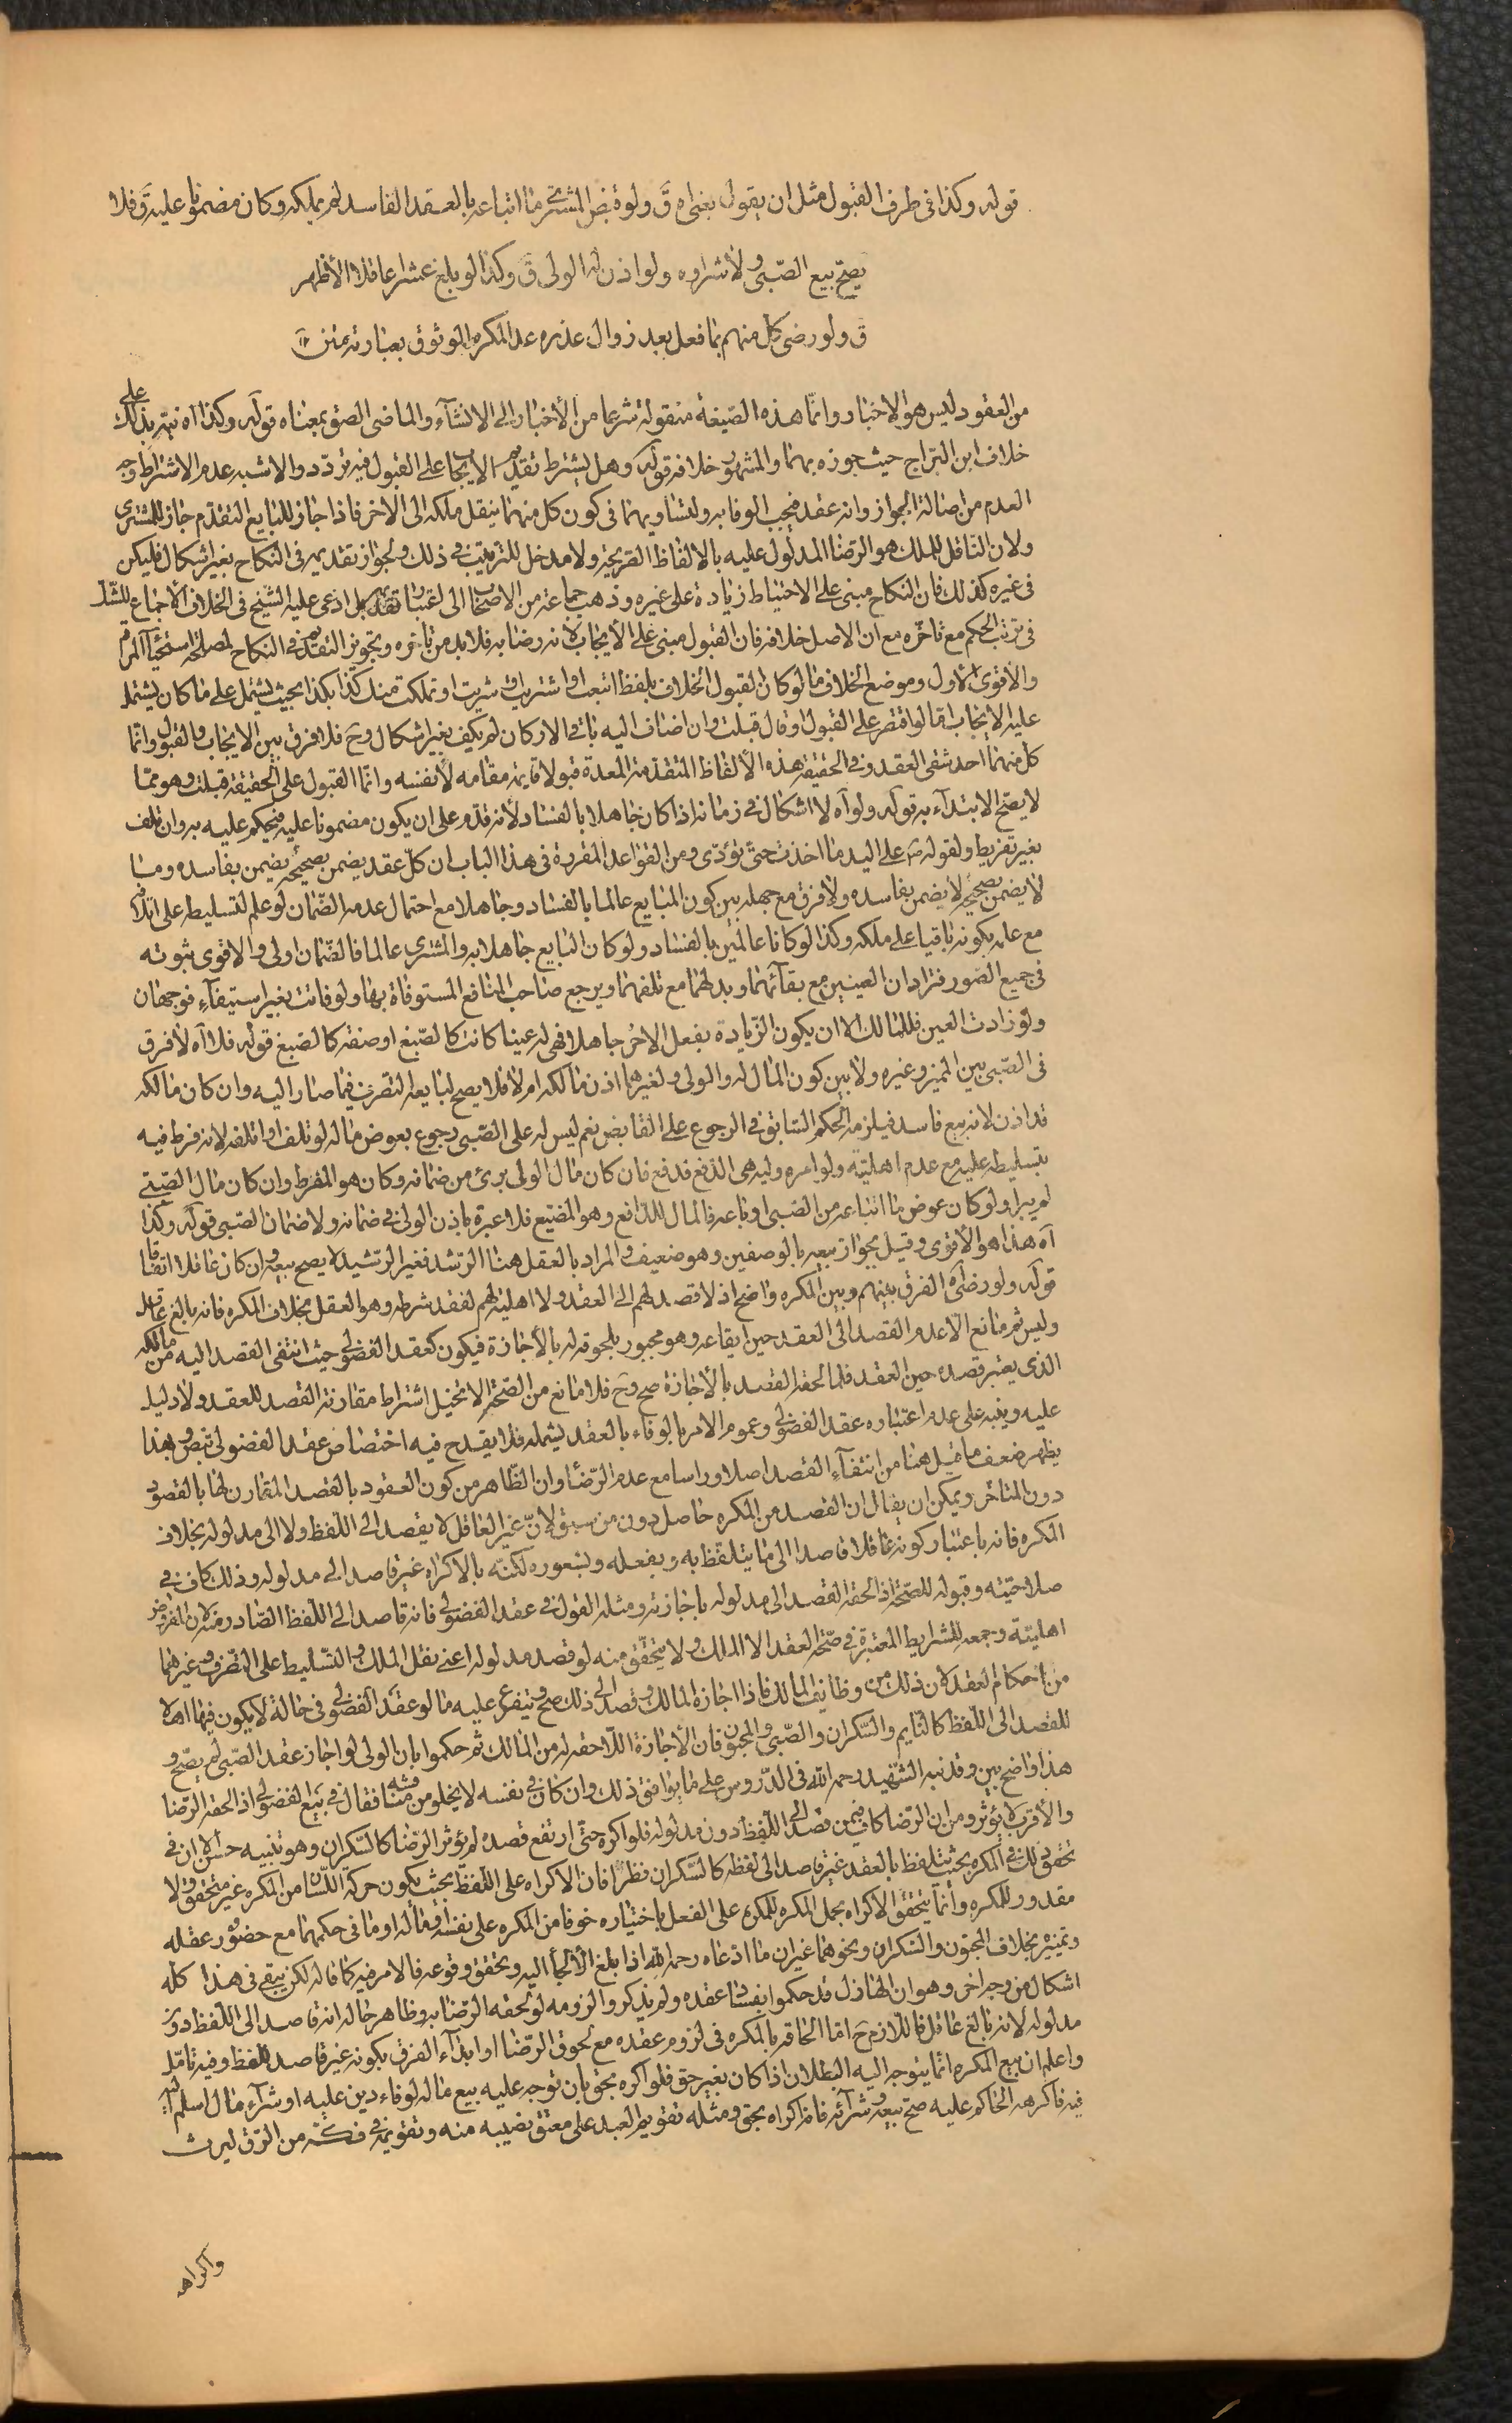 قوله وكذا في طرف القبول مثل ان يقول بعني ه ق ولو قبض المشتري ما ابتاعه بالعقد الفاسد لم يملكه وكان مضمونا عليه ق فلا
يصح بيع الصبي ولا شراؤه ولو اذن له الولي ق وكذا لو بلغ عشرا عاقلا الأظهر
ق ولو رضي كل منهم بما فعل بعد زوال عذره عدا المكره للوثوق بعبارته متن
من العقود ليس هو الاخبار وانما هذه الصيغة منقولة شرعا من الأخبار الى الانشآء والماضي الصق بمعناه قوله وكذا اه نبه بذلك على
خلاف ابن البراج حيث جوزه بهما والمشهور خلافه قوله وهل يشترط تقديم الايجاب على القبول فيه تردد والاشبه عدم الاشتراط وجه
العدم من اصالة الجواز وانه عقد فيجب الوفا به ولتساويهما في كون كل منهما ينقل ملكه الى الاخر فاذا جاز للبايع التقدم جاز للمشتري
ولان الناقل للملك هو الرضا المدلول عليه بالالفاظ الصريحة ولا مدخل للترتيب في ذلك ولجواز تقديمه في النكاح بغير اشكال فليكن
في غيره كذلك فان النكاح مبني على الاحتياط زيادة على غيره وذهب جماعة من الاصحاب الى اعتبار تقديمه بل ادعى عليه الشيخ في الخلاف الأجماع للشك
في ترتب الحكم مع تاخره مع ان الاصل خلافه فان القبول مبني على الأيجاب لأنه رضا به فلا بد من تاخره وتجويز التقديم في النكاح لمصلحة استحيآء المراة
والاقوى الأول وموضع الخلاف ما لو كان القبول الخلاف بلفظ ابتعت او اشتريت او شريت او تملكت منك كذا بكذا بحيث يشتمل على ما كان يشتمل
عليه الايجاب اما لو اقتصر على القبول او قال قبلت وان اضاف اليه باقي الاركان لم يكف بغير اشكال وح فلا فرق بين الايجاب والقبول وانما
كل منهما احد شقي العقد وفي الحقيقة هذه الألفاظ المتقدمة المعدة قبولا قايمة مقامه لأنفسه وانما القبول على الحقيقة قبلت وهو مما
لا يصح الابتدآء به قوله ولو آه لا اشكال في زمانه اذا كان جاهلا بالفساد لأنه قدم على ان يكون مضمونا عليه فيحكم عليه به وان تلف
بغير تفريط ولقوله ص على اليد ما اخذت حتى تؤدى ومن القواعد المقررة في هذا الباب ان كل عقد يضمن بصحيحه يضمن بفاسده وما
لا يضمن بصحيحه لا يضمن بفاسده ولا فرق مع جهله بين كون البايع عالما بالفساد وجاهلا مع احتمال عدم الضمان لو علم لتسليطه على اتلافه
مع علمه بكونه باقيا على ملكه وكذا لو كانا عالمين بالفساد ولو كان البايع جاهلا به والمشتري عالما فالضمان اولى والاقوى ثبوته
في جميع الصور فترادان العينين مع بقآئهما وبدلهما مع تلفهما ويرجع صاحب المنافع المستوفاة بها ولو فاتت بغير استيفآء فوجهان
ولو زادت العين فللمالك الا ان يكون الزيادة بفعل الاخر جاهلا فهي له عينا كانت كالصبغ او صفة كالصبغ قوله فلا آه لا فرق
في الصبي بين المميز وغيره ولا بين كون المال له والولي ولغيرهما اذن مالكه ام لا فلا يصح لبايعه التصرف فيما صار اليه وان كان مالكه
قد اذن لانه بيع فاسد فيلزمه الحكم السابق في الرجوع على القابض نعم ليس له على الصبي رجوع بعوض ماله لو تلف او اتلفه لانه فرط فيه
بتسليطه عليه مع عدم اهليته ولو امره وليه هي الدفع فدفع فان كان مال الولي برئ من ضمانه وكان هو المفرط وان كان مال الصبي
لم يبرا ولو كان عوض ما ابتاعه من الصبي او باعه فالمال للدافع وهو المضيع فلا عبرة باذن الولي في ضمانه ولا ضمان الصبي قوله وكذا
آه هذا هو الأقوى وقيل بجواز بيعه بالوصفين وهو ضعيف والمراد بالعقل هنا الرشد فغير الرشيد لا يصح بيعه وان كان عاقلا اتفاقا
قوله ولو رضي آه الفرق بينهم وبين المكره واضح اذ لا قصد لهم الى العقد ولا اهلية لهم لفقد شرطه وهو العقل بخلاف المكره فانه بالغ عاقل
وليس ثم مانع الا عدم القصد الى العقد حين ايقاعه وهو مجبور بلحوقه له بالأجازة فيكون كعقد الفضولي حيث انتفى القصد اليه من مالكه
الذي يعتبر قصده حين العقد فلما لحقه القصد بالأجازة صح وح فلا مانع من الصحة الا تخيل اشتراط مقارنة القصد للعقد ولا دليل
عليه وينبه على عدم اعتباره عقد الفضولي وعموم الامر بالوفاء بالعقد يشمله فلا يقدح فيه اختصاص عقد الفضولي بنص وبهذا
يظهر ضعف ما قيل هنا من انتفآء القصد اصلا وراسا مع عدم الرضا وان الظاهر من كون العقود بالقصد المقارن لها بالقصود
دون المتاخر ويمكن ان يقال ان القصد من المكره حاصل دون من سبق لان غير العاقل لا يقصد الى اللفظ ولا الى مدلوله بخلاف
المكره فانه باعتبار كونه عاقلا قاصدا الى ما يتلفظ به ويفعله وبشعوره لكنه بالاكراه غير قاصد الى مدلوله وذلك كاف في
صلاحيته وقبوله للصحة اذا لحقه القصد الى مدلوله باجازته ومثله القول في عقد الفضولي فانه قاصد الى اللفظ الصادر منه لان المفروض
اهليته وجمعه للشرايط المعتبرة في صحة العقد الا الملك ولا يتحقق منه لو قصد مدلوله اعني نقل الملك والتسليط على التصرف وغيرهما
من احكام العقد لان ذلك من وظايف المالك فاذا اجازه المالك وقصد الى ذلك صح ويتفرع عليه ما لو عقد الفضولي في حالة لا يكون فيها اهلا
للقصد الى اللفظ كالنايم والسكران والصبي والمجنون فان الأجازة اللاحقه له من المالك ثم حكموا بان الولي لو اجاز عقد الصبي لم يصح و
هذا واضح بين وقد نبه الشهيد رحمه الله في الدروس على ما يوافق ذلك وان كان في نفسه لا يخلو من مناقشه فقال في بيع الفضولي اذا لحقه الرضا
والأقرب لا يؤثر ومن ان الرضا كاف فيمن قصد الى اللفظ دون مدلوله فلو اكره حتى ارتفع قصده لم يؤثر الرضا كالسكران وهو تنبيه حسن الا ان في
تحقق ذلك في المكره بحيث يتلفظ بالعقد غير قاصد الى لفظه كالسكران نظرا فان الاكراه على اللفظ بحيث يكون حركة اللسان من المكره غير متحقق ولا
مقدور للمكره وانما يتحقق الاكراه بحمل المكره للمكره على الفعل باختياره خوفا من المكره على نفسه وماله او ما في حكمهما مع حضور عقله
وتميزه بخلاف المجنون والسكران ونحوهما غير ان ما ادعاه رحمه الله اذا بلغ الالجأ اليه وتحقق وقوعه فالامر فيه كما قاله لكن يبقى في هذا كله
اشكال من وجه اخر وهو ان الهازل قد حكموا بفساد عقده ولم يذكروا لزومه لو لحقه الرضا به وظاهر حاله انه قاصد الى اللفظ دون
مدلوله لانه بالغ عاقل فاللازم ح اما الحاقه بالمكره في لزوم عقده مع لحوق الرضا او ابدآء الفرق بكونه غير قاصد للفظ وفيه تامل
واعلم ان بيع المكره انما يتوجه اليه البطلان اذا كان بغير حق فلو اكره بحق بان توجه عليه بيع ماله لوفاء دين عليه او شرآء مال اسلم اليه
فيه فاكرهه الحاكم عليه صح بيعه وشرآئه فانه اكراه بحق ومثله تقويم العبد على معتق نصيبه منه وتقويمه في فكه من الرق ليرث
واكراهه